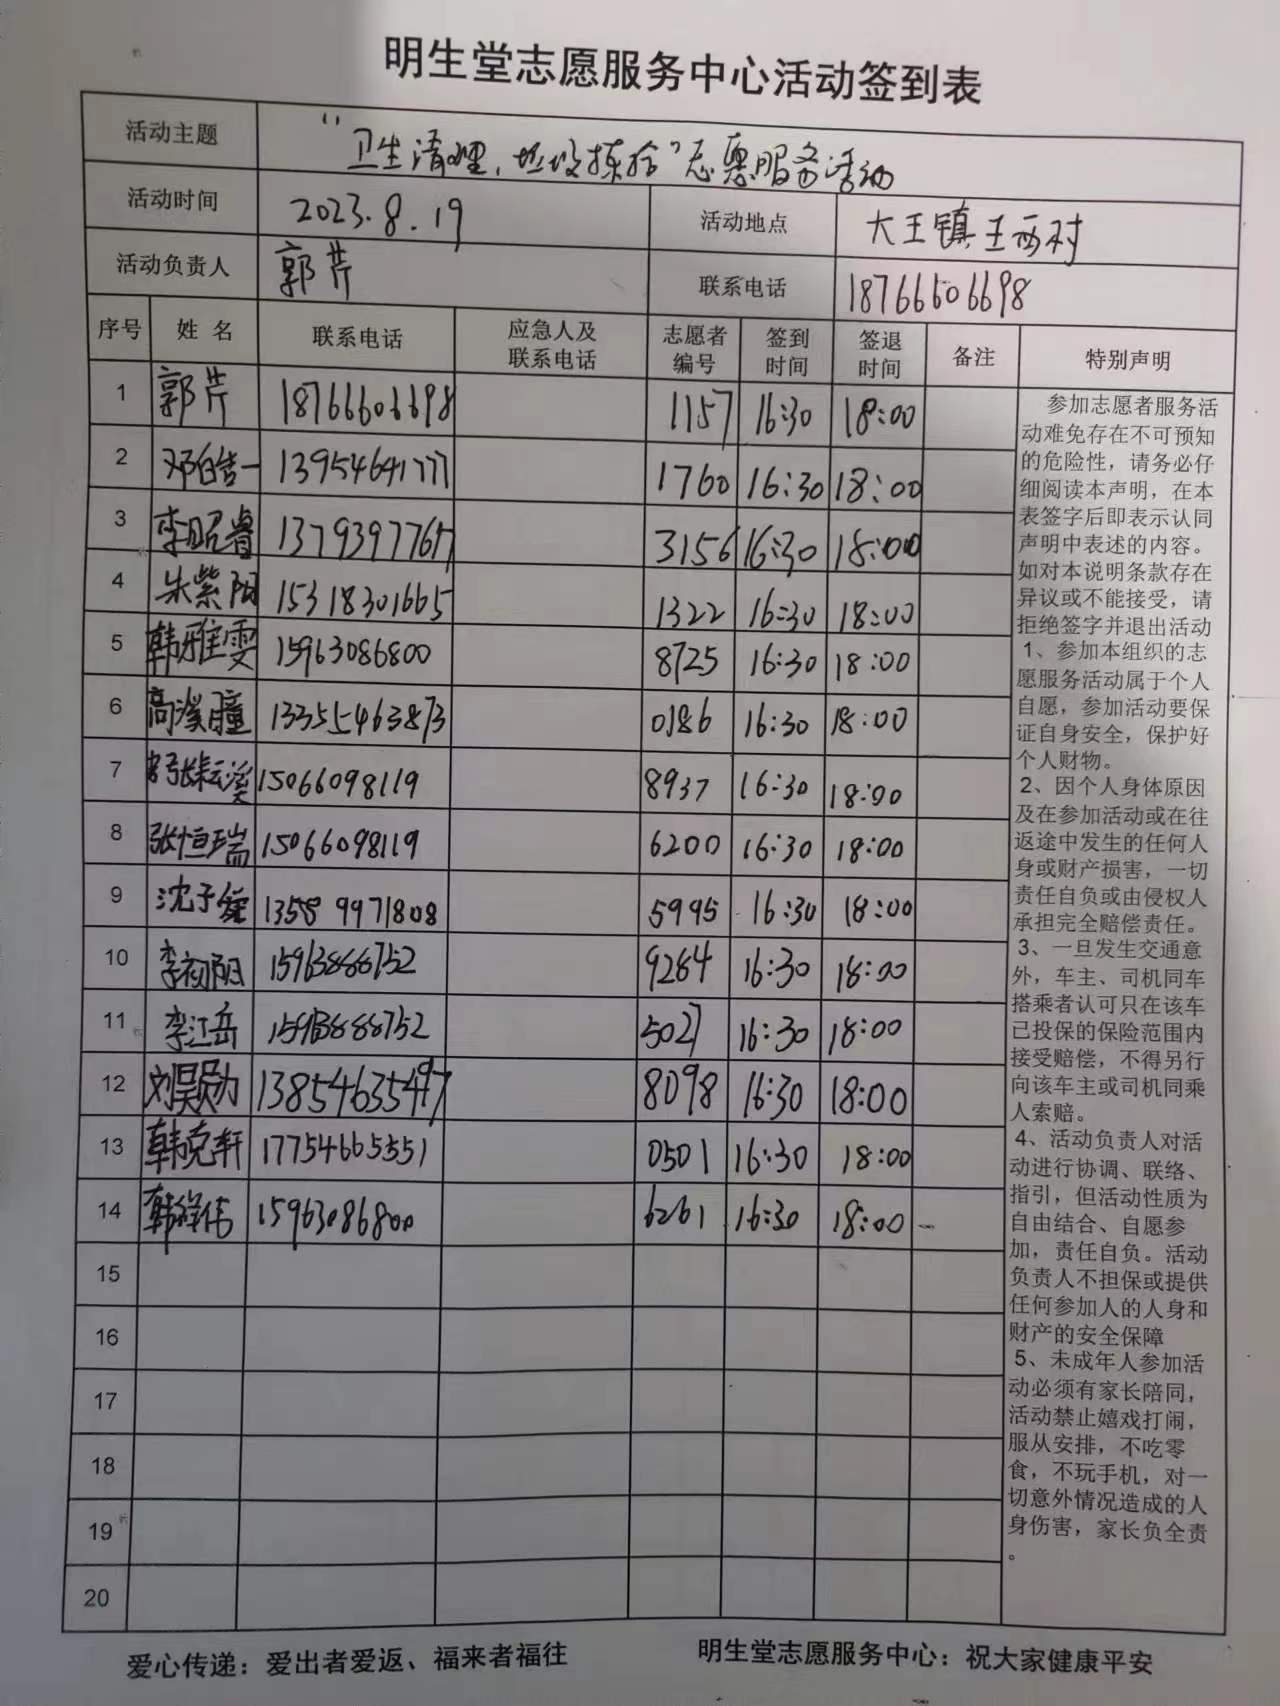 明生堂志愿服务中心活动签到表
活动主题 “卫生清理,垃圾捡拾”志愿服务活动
活动时间 2023.8.19 活动地点 大王镇王西村
活动负责人 郭芹 联系电话 18766606698
序号 姓名 联系电话 应急人及联系电话 志愿者编号 签到时间 签退时间 备注 特别声明
1 郭芹 18766606698 1157 16:30 18:00
2 邓皓一 13954641777 1760 16:30 18:00
3 李昭睿 13793977657 3156 16:30 18:00
4 朱紫阳 15318301665 1322 16:30 18:00
5 韩雅雯 15963086800 8725 16:30 18:00
6 高溪瞳 13355463873 0186 16:30 18:00
7 15066098119 8937 16:30 18:00
8 张恒瑞 15066098119 6200 16:30 18:00
9 沈子 13589971808 5995 16:30 18:00
10 李初阳 15963888752 9284 16:30 18:00
11 李江岳 15963888752 5027 16:30 18:00
12 刘昊勋 13854635497 8098 16:30 18:00
13 韩克轩 17754665351 0501 16:30 18:00
14 韩祥伟 15963086800 6261 16:30 18:00
15
16
17
18
19
20
参加志愿者服务活
动难免存在不可预知
的危险性，请务必仔
细阅读本声明，在本
表签字后即表示认同
声明中表述的内容。
如对本说明条款存在
异议或不能接受，请
拒绝签字并退出活动
1、参加本组织的志
愿服务活动属于个人
自愿，参加活动要保
证自身安全，保护好
个人财物。
2、因个人身体原因
及在参加活动或在往
返途中发生的任何人
身或财产损害，一切
责任自负或由侵权人
承担完全赔偿责任。
3、一旦发生交通意
外，车主、司机同车
搭乘者认可只在该车
已投保的保险范围内
接受赔偿，不得另行
向该车主或司机同乘
人索赔。
4、活动负责人对活
动进行协调、联络、
指引，但活动性质为
自由结合、自愿参
加，责任自负。活动
负责人不担保或提供
任何参加人的人身和
财产的安全保障
5、未成年人参加活
动必须有家长陪同，
活动禁止嬉戏打闹，
服从安排，不吃零
食，不玩手机，对一
切意外情况造成的人
身伤害，家长负全责
。
爱心传递：爱出者爱返、福来者福往 明生堂志愿服务中心：祝大家健康平安